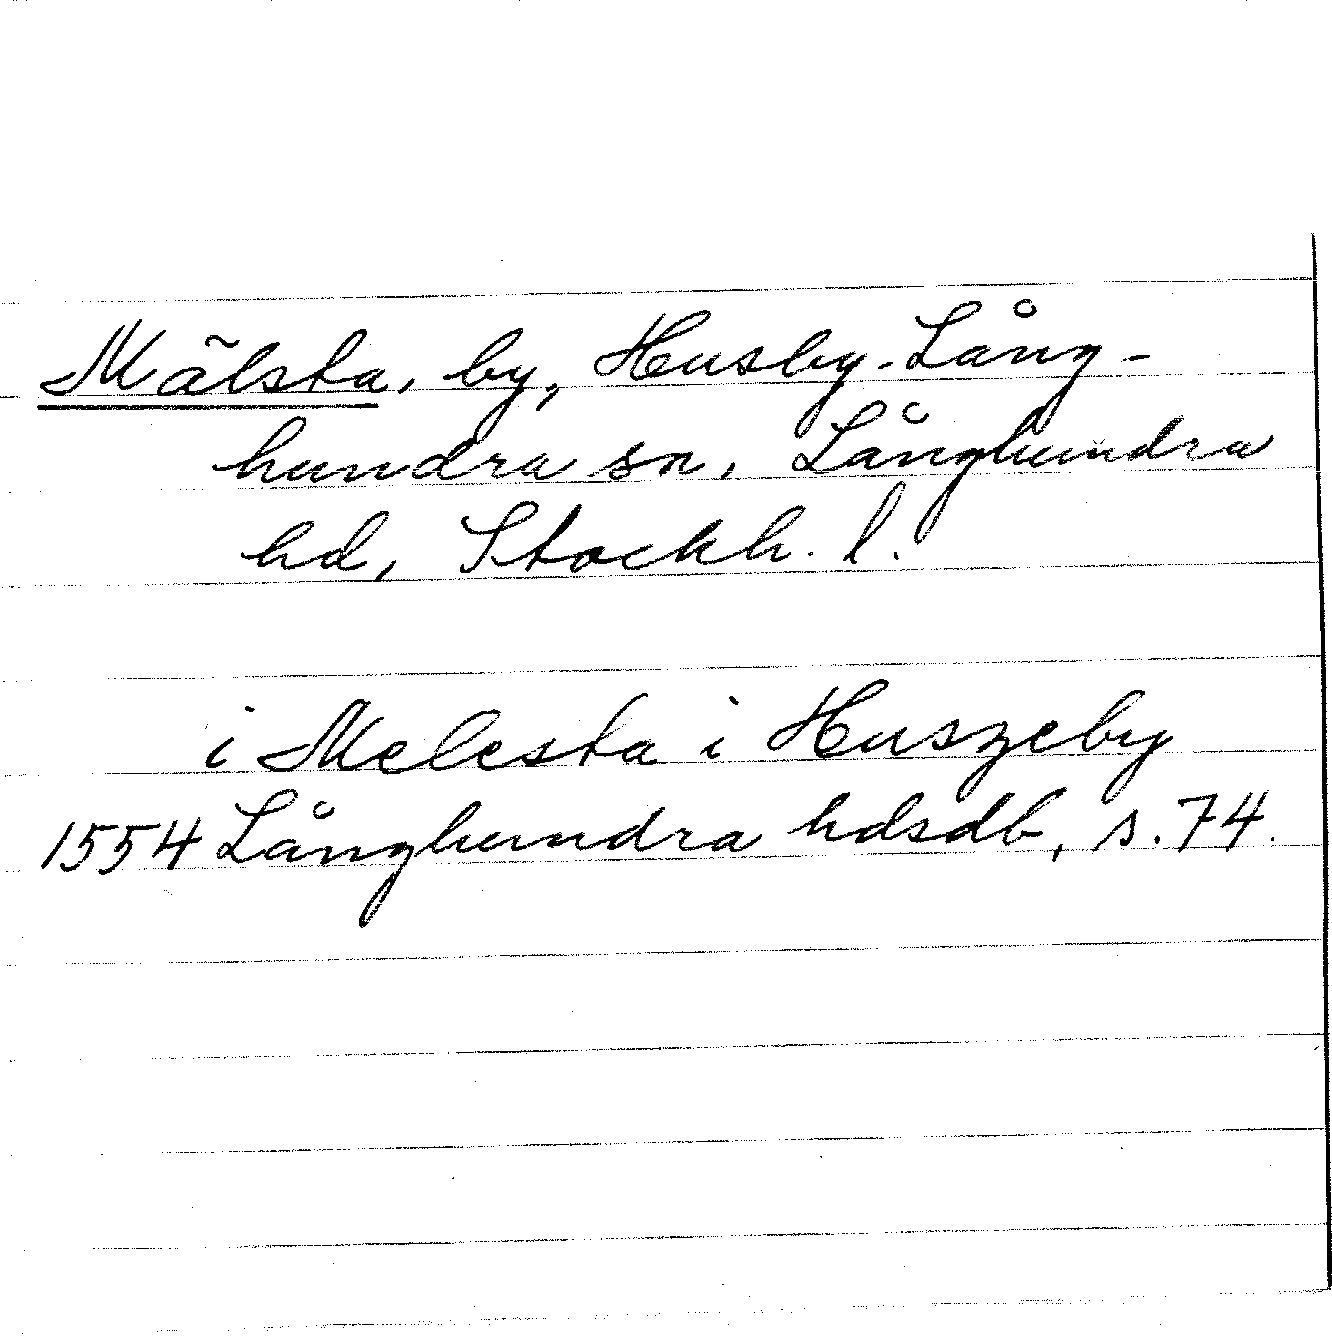 Mälsta, by, Husby-Lång-
hundra sn, Långhundra
hd, Stockh. l.
i Melesta i Huszeby
1554 Långhundra hdsdb, s. 74.